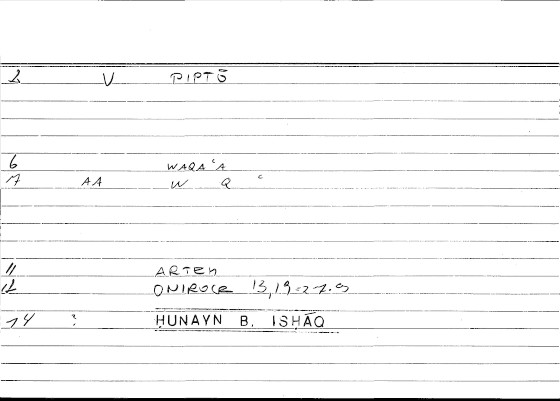 2 V PIPTŌ
6 WAQAʿA
7 AA W Q ʿ
11 ARTEM
12 ONIROCR 13,19
14 : ḤUNAYN B. ISḤĀQ